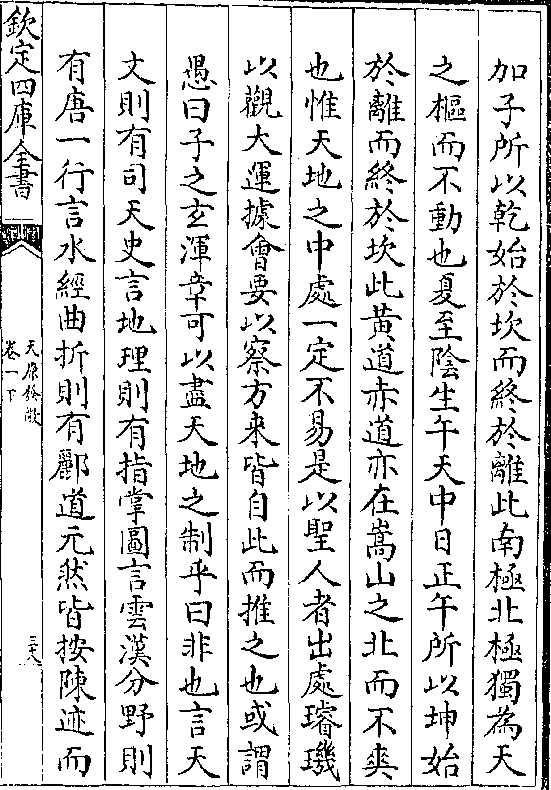 加子所以乾始於坎而終於離此南極北極獨為天
之樞而不動也夏至陰生午天中日正午所以坤始
於離而終於坎此黃道赤道亦在嵩山之北而不爽
也惟天地之中處一定不易是以聖人者出處璿璣
以觀大運據會要以察方來皆自此而推之也或謂
愚曰子之玄渾章可以盡天地之制乎曰非也言天
文則有司天史言地理則有指掌圖言雲漢分野則
有唐一行言水經曲折則有酈道元然皆按陳迹而
欽定四庫全書
天原發微
卷一下
三十八